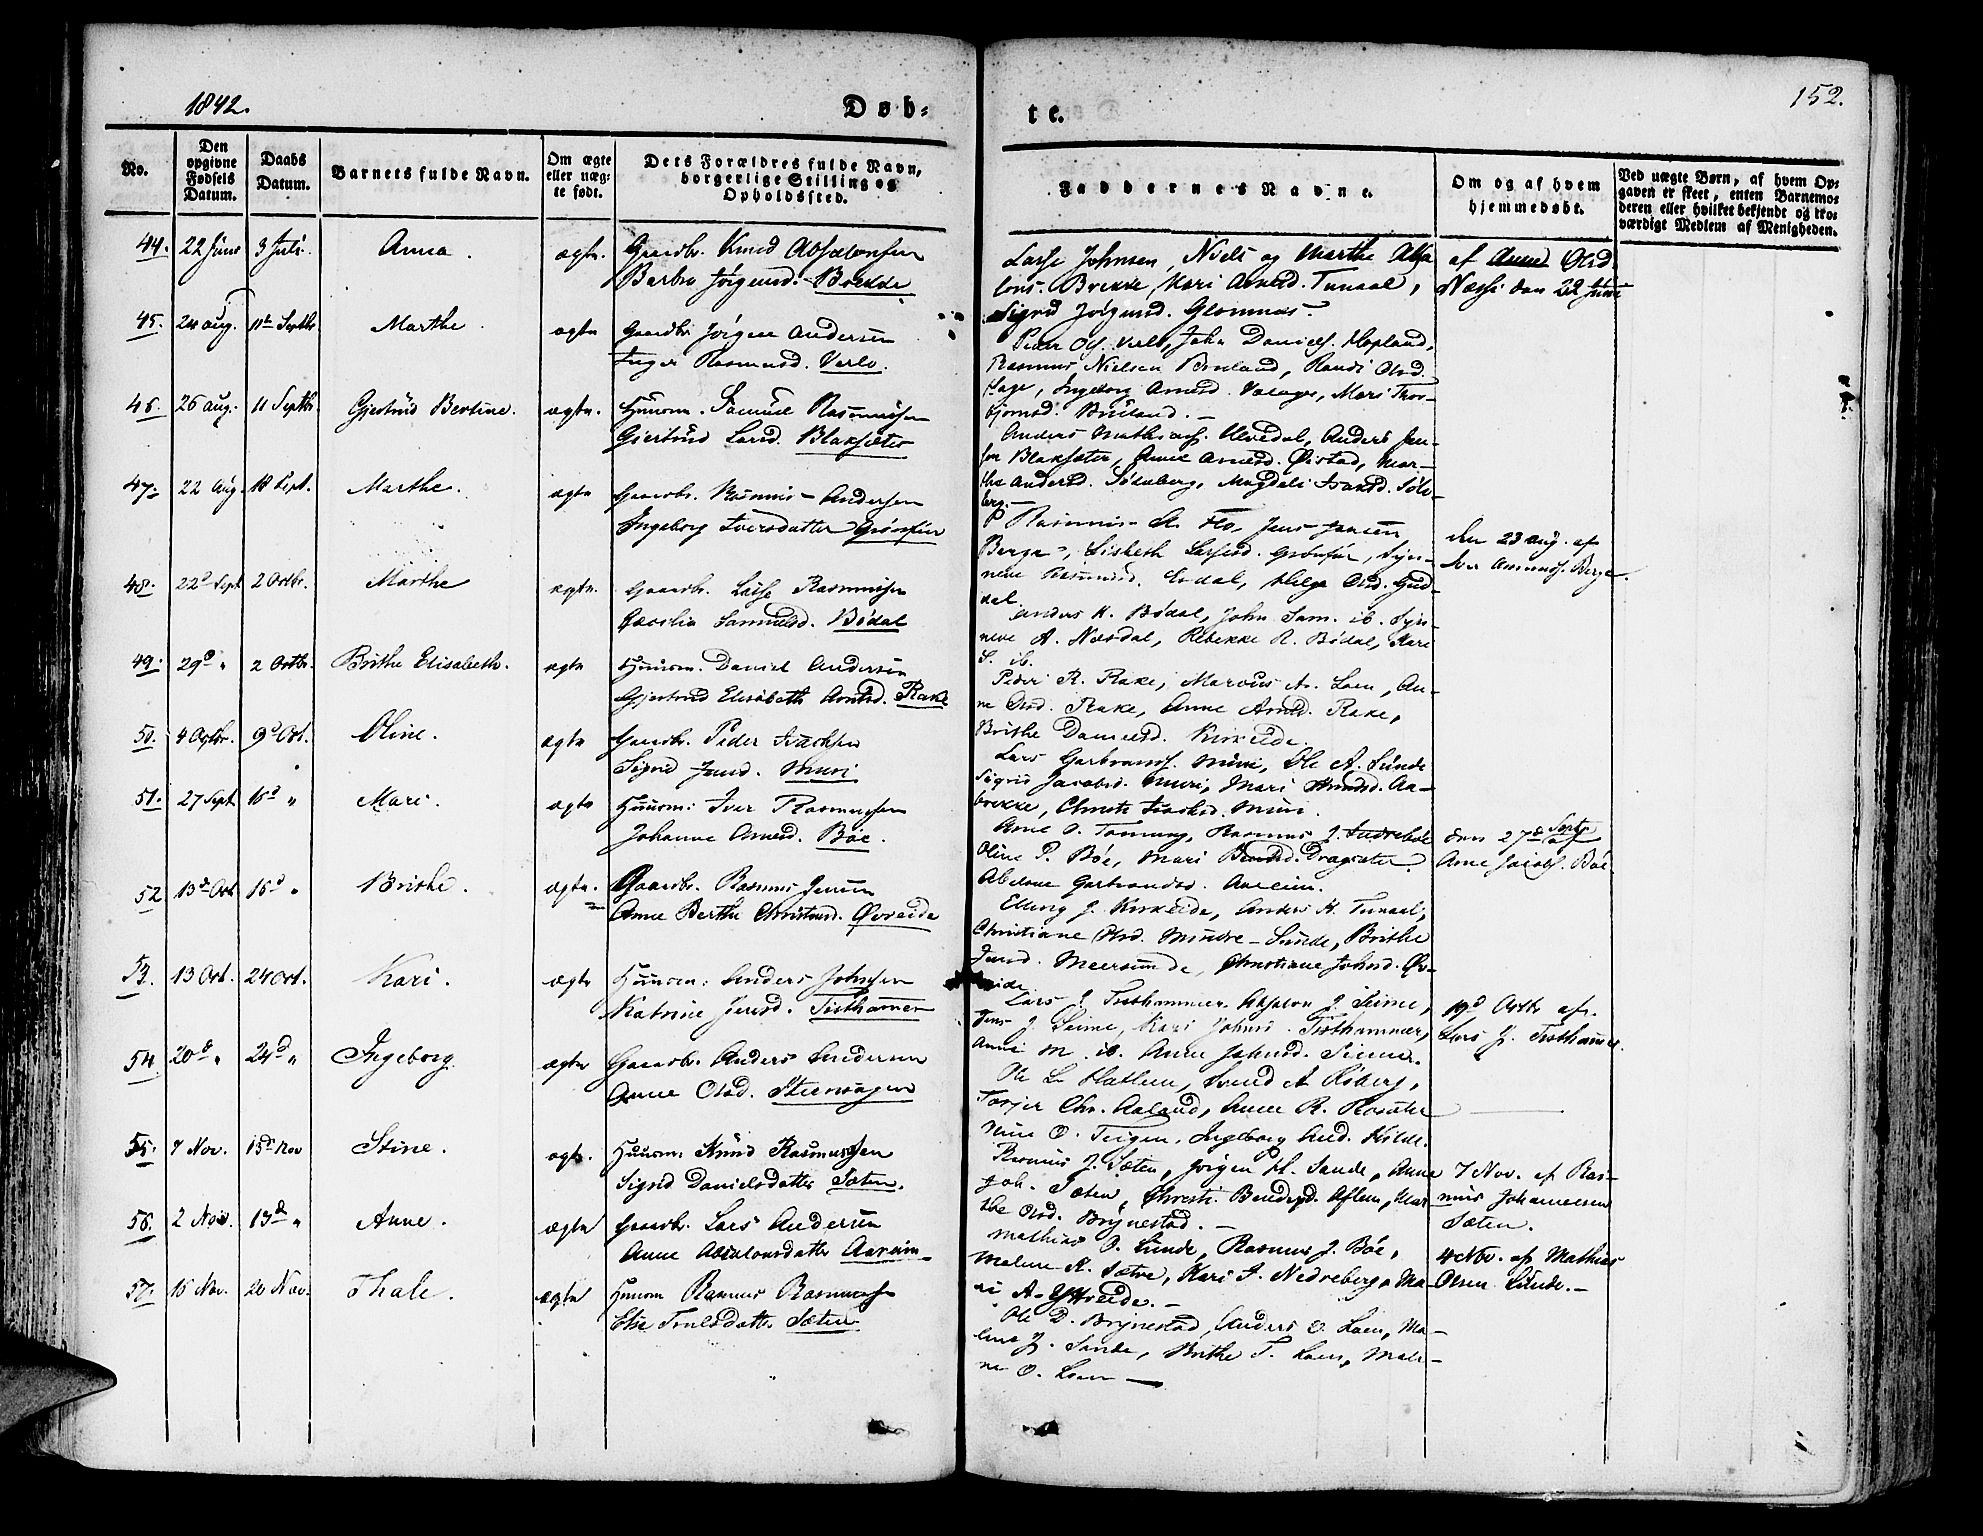 1842.
Døb-
te.
152.
No.
Den opgivne Fødsels Datum.
Daabs Datum.
Barnets fulde Navn.
Om ægte eller uægte født.
Dets Forældres fulde Navn, borgerlige Stilling og Opholdssted.
Faddernes Navne.
Om og af hvem hjemmedøbt.
Ved uægte Børn, af hvem Opgaven er skeet, enten Barnemoderen eller hvilket bekjendt og troværdigt Medlem af Menigheden.
44. 22 Juni 3 Juli. Anna. ægte. Gaardbr. Knud Absalonsen
Barbro Jørgensd. Brekke
Lasse Johnsen, Niels og Marthe Absa
lons. Brekke, Kari Arnesd. Tunaal,
Sigrid Jørgensd. Glomnæs.
af Anne Olsd.
Næsse den 22 Juni
45. 24 aug. 11te Septbr. Marthe. ægte Gaardbr. Jørgen Andersen
Inger Rasmusd. Verlo.
Peder Ols. Verlo, John Daniels. Hopland,
Rasmus Nielsen Bruland, Randi Olsd.
Hage, Ingeborg Arnesd. Valager, Mari Thor-
bjørnsd. Bruland. -
46 26 aug. 11 Septbr. Gjertrud Bertine. ægte. Huusm. Samuel Rasmussen
Gjertrud Larsd. Blaksæter
Anders Mathias. Ulvedal, Anders Jen-
sen Blaksæter, Anne Arnesd. Øistad, Mar-
the Andersd. Sølvberg, Magdeli Isaksd. Sølv-
berg.
47. 22 Aug. 18 Sept. Marthe. ægte Gaardbr. Rasmus Andersen
Ingeborg Iversdatter Grønfur
Rasmus A. Flo, Jens Jansen
Berge, Lisbeth Lassesd. Grønfur, Syn-
neve Rasmusd. Erdal, Helge Olsd. Gud-
dal.
den 23 aug. af
Iver Amunds. Berge.
48. 22d Sept 2 Octbr. Marthe ægte. Gaardbr. Lasse Rasmussen
Cecilia Samuelsd. Bødal
Anders K. Bødal, John Sam. ib. Syn-
neve A. Næsdal, Rebekke R. Bødal, Kari
S. ib.
49. 29d " 2 Octbr. Brithe Elisabeth. ægte Huusm. Daniel Andersen
Gjertrud Elisabeth Arntsd. Rake
Peder R. Rake, Marcus A. Loen, An-
ne Olsd. Rake, Anne Arntsd. Rake,
Brithe Danielsd. Kirkeide.
50. 4 Octbr. 9d Oct. Oline. ægte Gaardbr. Peder Isachsen
Sigrid Jensd. Muri
Lars Garbrands. Muri, Ole A. Sunde
Sigrid Jacobsd. Muri, Mari Knudsd. Aa-
brekke, Christi Isachsd. Muri.
51. 27 Sept 16d " Mari. ægte Huusm: Iver Rasmussen
Johanne Arnesd. Bøe.
Arne O. Tonning, Rasmus J. Indrebøe
Oline P. Bøe, Mari Berntsd. Dragsæter,
Abelone Garbrandsd. Aareim.
den 27d Septr af
Arne Jacobs. Bøe
52 13d Oct 16d " Brithe. ægte. Gaardbr. Rasmus Jensen
Anne Berthe Christensd. Øvreide
Elling J. Kirkeide, Anders H. Tunaal,
Christiane Olsd. Mindre-Sunde, Brithe
Jensd. Meersunde, Christiane Johnsd. Øv-
reide.
53. 13 Oct. 24 Oct. Kari. ægte Huusm: Anders Johnsen
Katrine Jensd. Tisthammer
Lars J. Tisthammer, Absalon J. Seime,
Jens J. Seime, Kari Johnsd. Tisthammer,
Anne M. ib. Anne Johnsd. Seime.
19d Octbr af.
Lars J. Tisthammer.
54. 20d " 24d " Ingeborg ægte Gaardbr. Anders Andersen
Anne Olsd. Steensagen
Ole L. Hatlem, Svend A. Risberg,
Torjer Chr. Aaland, Anne R. Rosæter
Mine O. Teigen, Ingeborg And. Hilde.
55. 7 Nov. 13d Nov Stine. ægte. Huusm: Knud Rasmussen
Sigrid Danielsdatter Sæten.
Rasmus J. Sæten, Jørgen H. Sande, Anne
Joh. Sæten, Christi. Bendixd. Aflem, Mar-
the Olsd. Brynestad. -
7 Nov. af Ras-
mus Johannessen
Sæten.
56. 2 Nov. 13d " Anne. ægte Gaardbr. Lars Andersen
Anne Absalonsdatter Aareim
Mathias O. Sunde, Rasmus J. Bøe,
Malene K. Sætre, Kari A. Nedreberg, Ma-
ri A. Yttreide. -
4 Nov. af Mathias
Olsen Sunde. -
57. 15 Nov. 20 Nov. Thale. ægte Huusm Rasmus Rasmussen
Else Truelsdatter Sæten
Ole D. Brynestad, Anders O. Loen, Ma-
lene J. Sande, Brithe T. Loen, Male-
ne O. Loen -